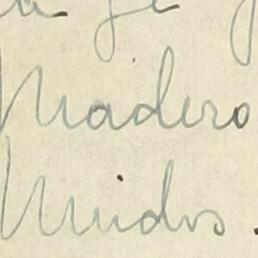 Madero
Unidos.